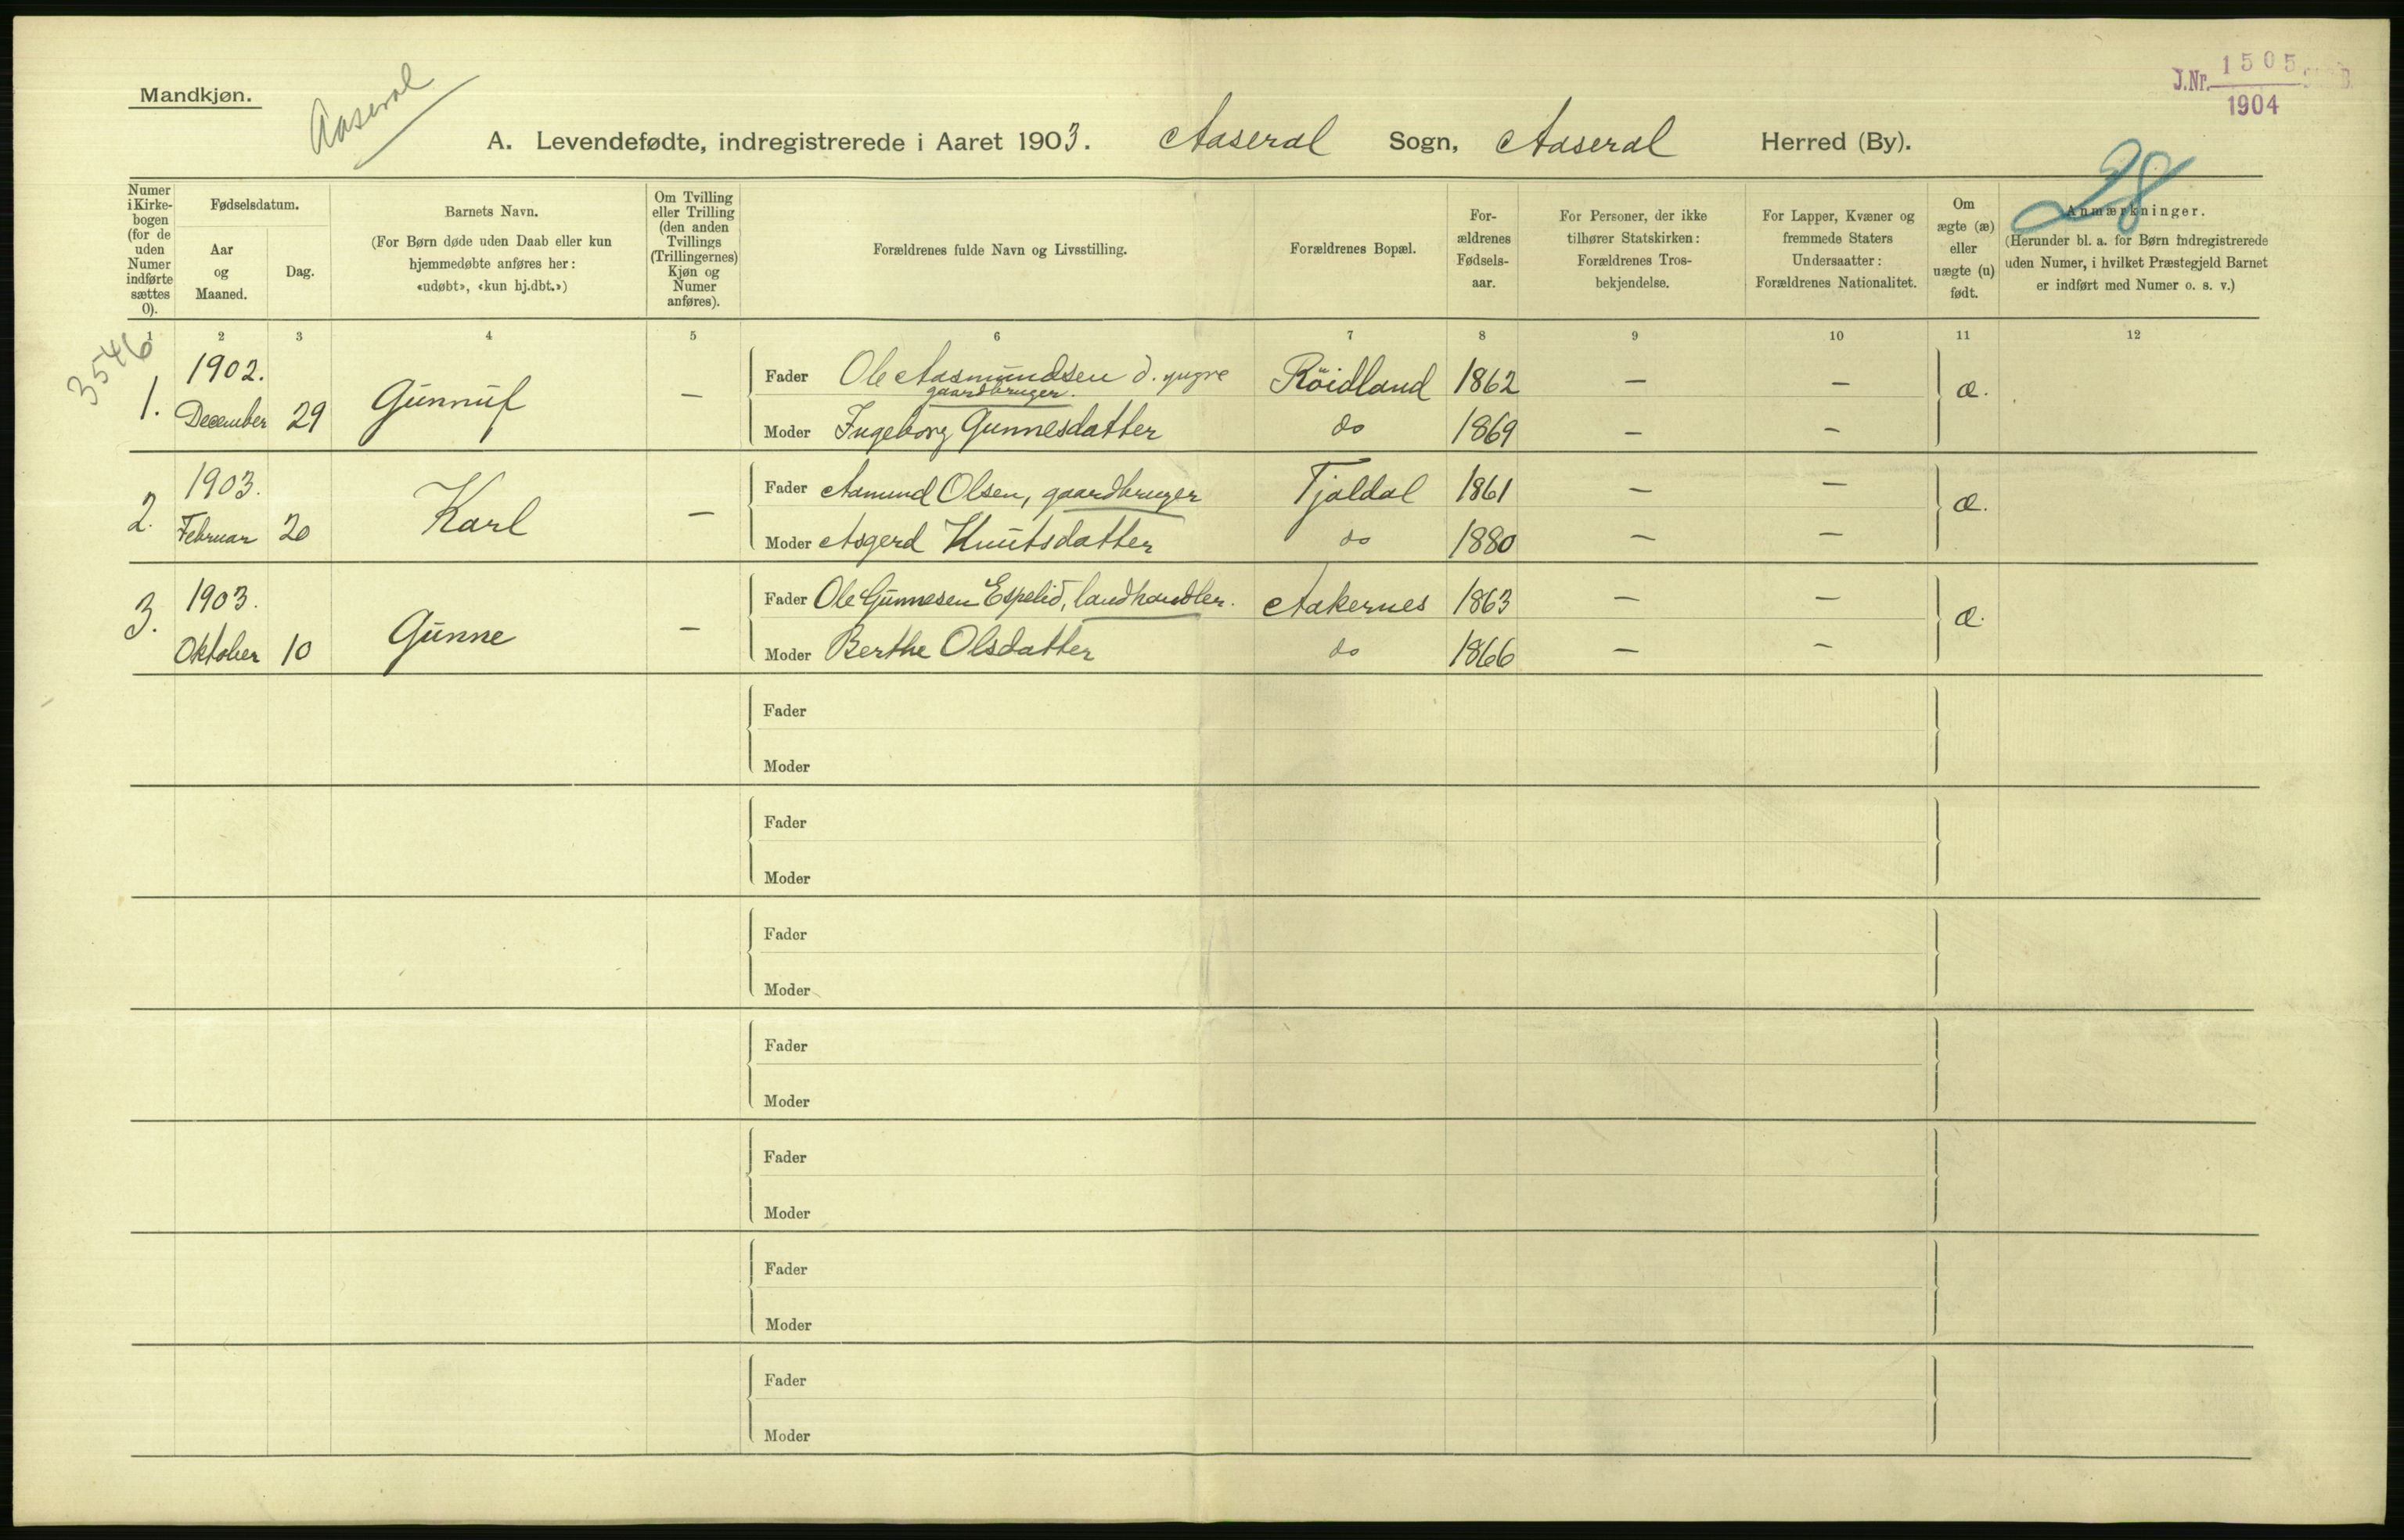 Mandkjøn.
Aaseral
J.Nr. 1505
1904
A. Levendefødte, indregistrerede i Aaret 1903. Aaseral Sogn, Aaseral Herred (By).
28
Numer i Kirke-bogen (for de uden Numer indførte sættes 0).
Fødselsdatum.
Aar og Maaned.
Dag.
Barnets Navn.
(For Børn døde uden Daab eller kun
hjemmedøbte anføres her:
«udøbt», «kun hj.dbt.»)
Om Tvilling
eller Trilling
(den anden
Tvillings
(Trillingernes)
Kjøn og
Numer
anføres).
Forældrenes fulde Navn og Livsstilling.
Forældrenes Bopæl.
For-
ældrenes
Fødsels-
aar.
For Personer, der ikke
tilhører Statskirken:
Forældrenes Tros-
bekjendelse.
For Lapper, Kvæner og
fremmede Staters
Undersaatter:
Forældrenes Nationalitet.
Om
ægte (æ)
eller
uægte (u)
født.
Anmærkninger.
(Herunder bl. a. for Børn indregistrerede
uden Numer, i hvilket Præstegjeld Barnet
er indført med Numer o. s. v.)
1 2 3 4 5 6 7 8 9 10 11 12
3546
1. 1902. December 29 Gunnuf —
Fader Ole Aasmundsen d. yngre Röidland 1862 — — æ.
gaardbruger.
Moder Ingeborg Gunnesdatter do 1869 — —
2. 1903. Februar 20 Karl —
Fader Asmund Olsen, gaardbruger Tjaldal 1861 — — æ.
Moder Asgerd Knutsdatter do 1880 — —
3. 1903. Oktober 10 Gunne —
Fader Ole Gunnesen Espelid, landhandler. Aakernes 1863 — — æ.
Moder Berthe Olsdatter do 1866 — —
Fader
Moder
Fader
Moder
Fader
Moder
Fader
Moder
Fader
Moder
Fader
Moder
Fader
Moder